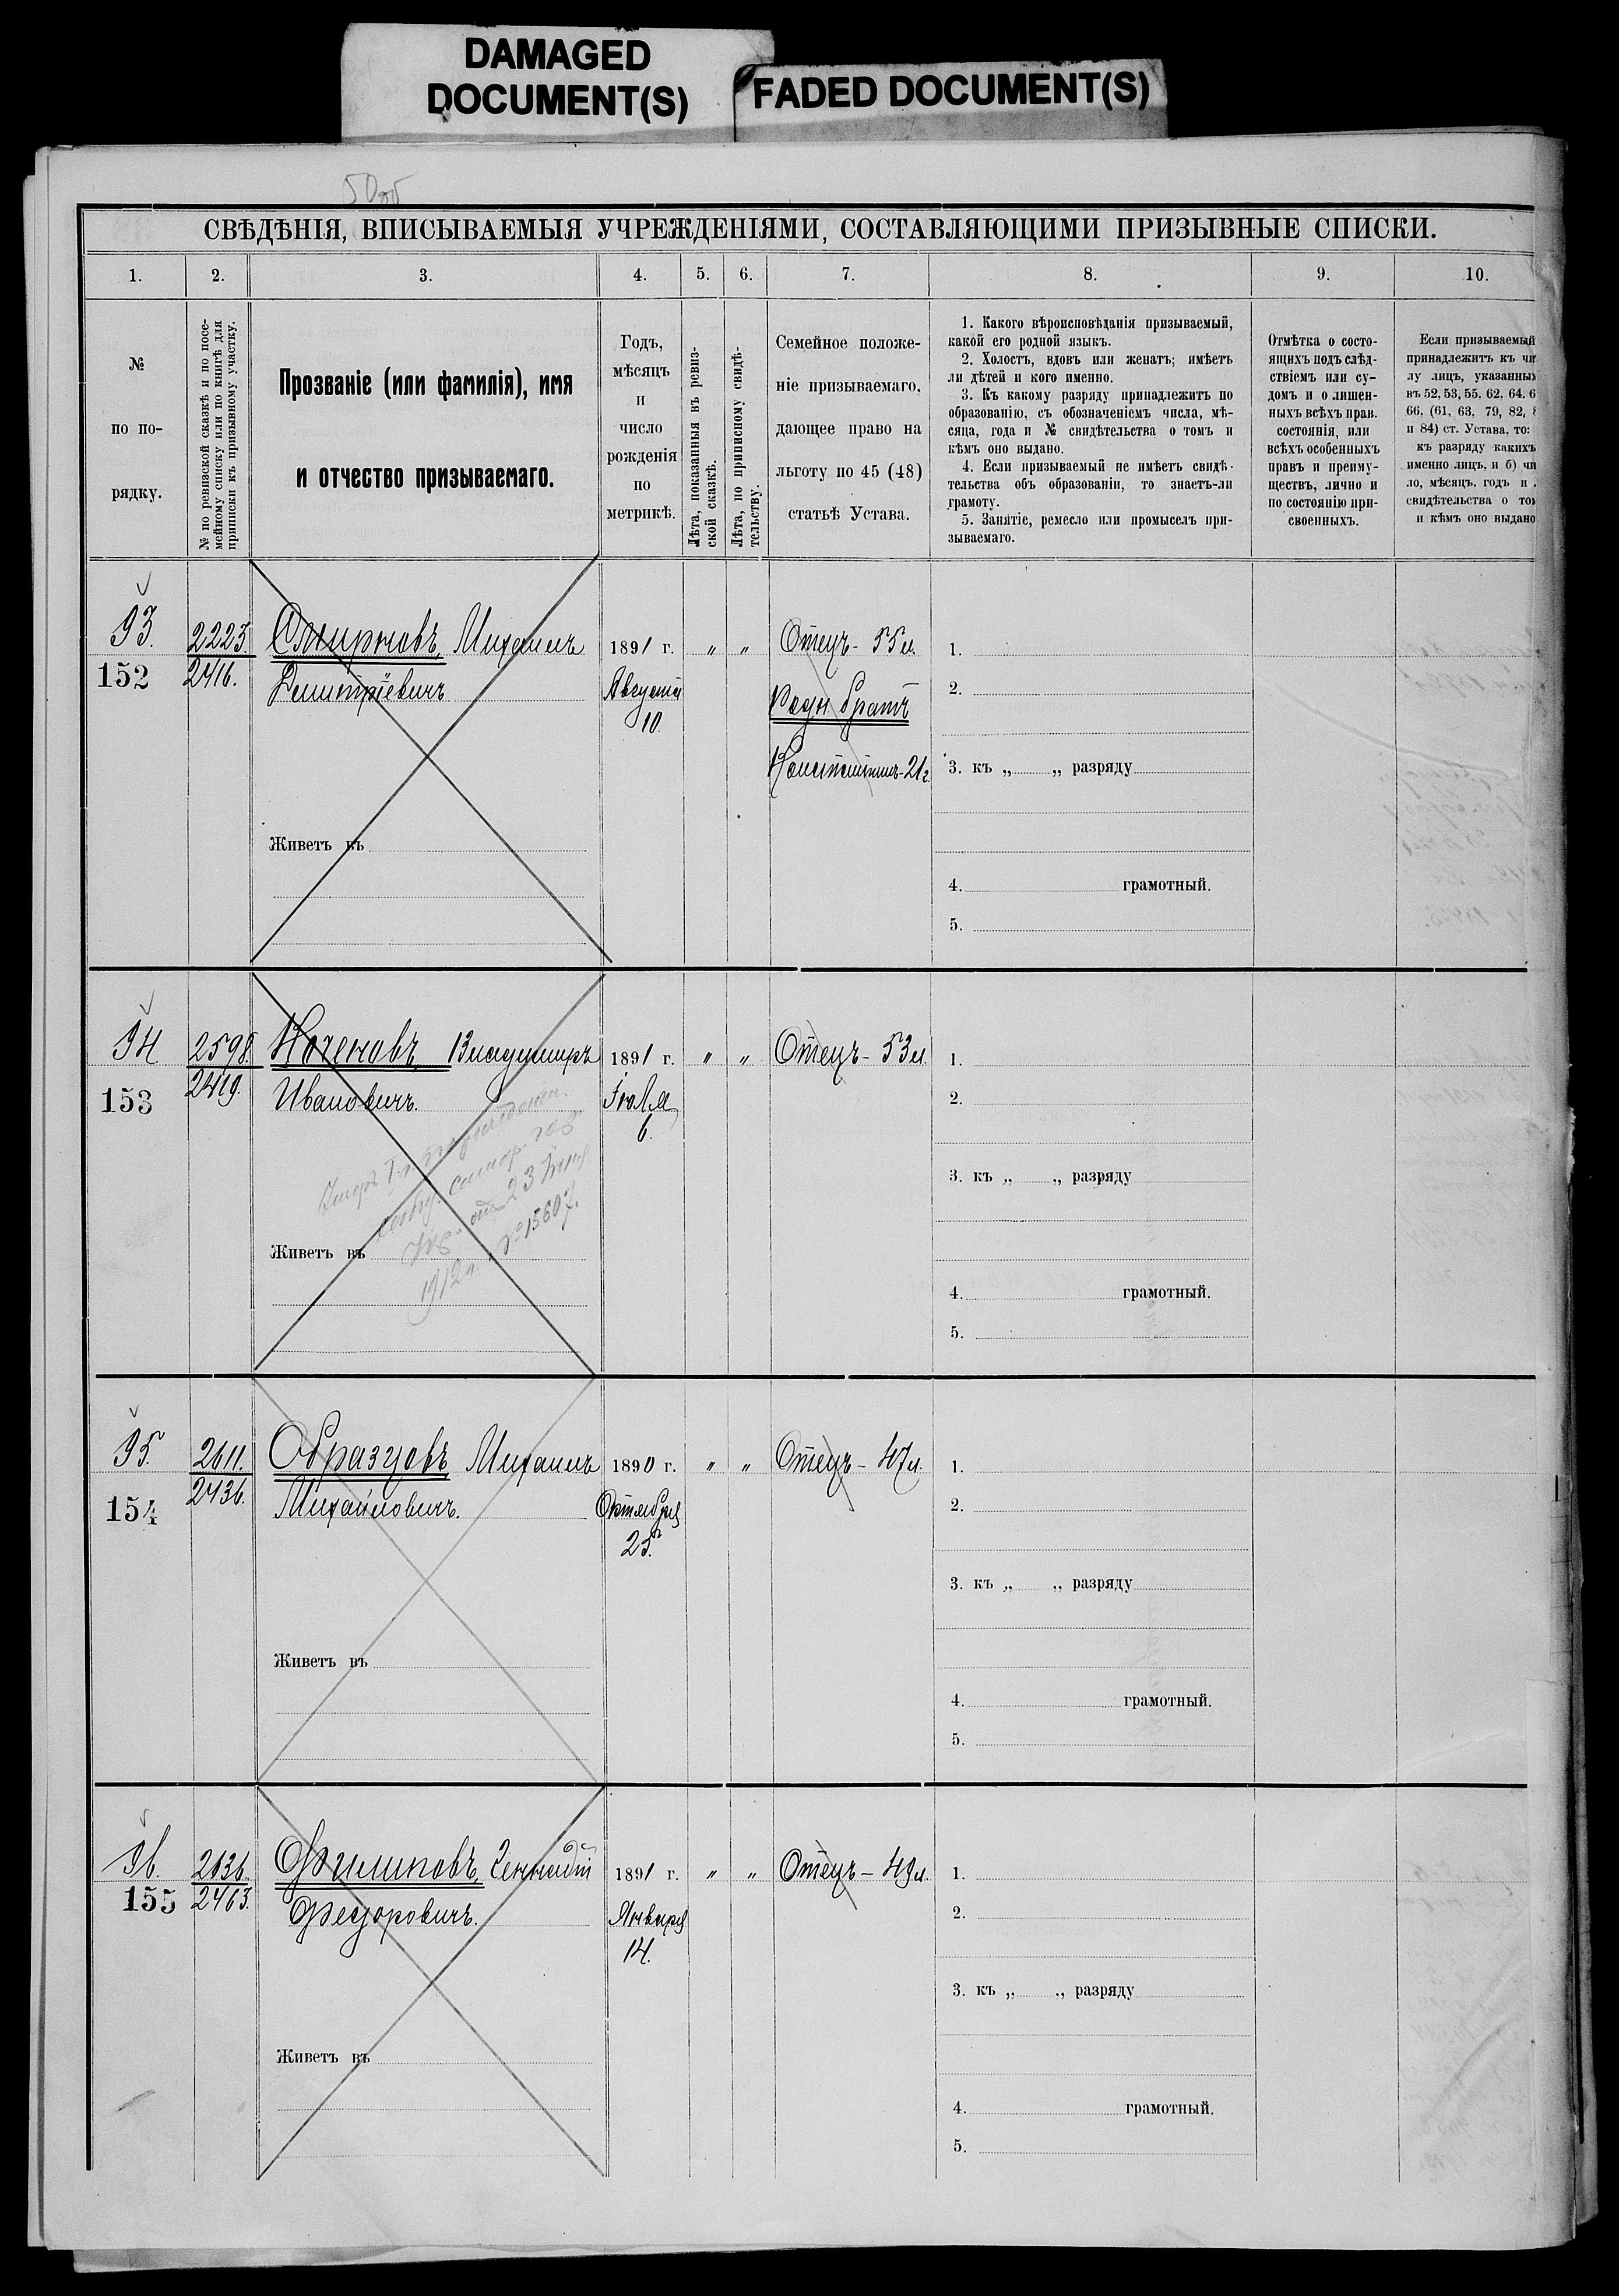 DAMAGED
DOCUMENT(S)
FADED DOCUMENT(S)
СВѢДѢНІЯ, ВПИСЫВАЕМЫЯ УЧРЕЖДЕНІЯМИ, СОСТАВЛЯЮЩИМИ ПРИЗЫВНЫЕ СПИСКИ.
1. 2. 3. 4. 5. 6. 7. 8. 9. 10.
№
по по-
рядку.
№ по ревизской сказкѣ и по посе-
мейному списку или по книгѣ для
приписки къ призывному участку.
Прозваніе (или фамилія), имя
и отчество призываемаго.
Годъ,
мѣсяцъ
и
число
рожденія
по
метрикѣ.
Лѣта, показанныя въ ревиз-
ской сказкѣ.
Лѣта, по приписному свидѣ-
тельству.
Семейное положе-
ніе призываемаго,
дающее право на
льготу по 45 (48)
статьѣ Устава.
1. Какого вѣроисповѣданія призываемый,
какой его родной языкъ.
2. Холостъ, вдовъ или женатъ; имѣетъ
ли дѣтей и кого именно.
3. Къ какому разряду принадлежитъ по
образованію, съ обозначеніемъ числа, мѣ-
сяца, года и № свидѣтельства о томъ и
кѣмъ оно выдано.
4. Если призываемый не имѣетъ свидѣ-
тельства объ образованіи, то знаетъ-ли
грамоту.
5. Занятіе, ремесло или промыселъ при-
зываемаго.
Отмѣтка о состо-
ящихъ подъ слѣд-
ствіемъ или су-
домъ и о лишен-
ныхъ всѣхъ прав.
состоянія, или
всѣхъ особенныхъ
правъ и преиму-
ществъ, лично и
по состоянію при-
своенныхъ.
Если призываемый
принадлежитъ къ чи
лу лицъ, указанны
въ 52, 53, 55, 62, 64, 6
66, (61, 63, 79, 82,
и 84) ст. Устава, то:
къ разряду какихъ
именно лицъ, и б) чи
ло, мѣсяцъ, годъ и
свидѣтельства о то
и кѣмъ оно выдано
93. 2223. Смирновъ, Михаилъ 1891 г. „ „ Отецъ - 55 л. 1.
152 2416. Дмитріевичъ Августа Родн братъ 2.
10. Константинъ - 21 г. 3. къ „ „ разряду
Живетъ въ
4. грамотный.
5.
94 2598. Ноченовъ, Владимиръ 1891 г. „ „ Отецъ - 53 л. 1.
153 2419. Ивановичъ. Іюля 2.
6.
23
3. къ „ „ разряду
№ 15607.
Живетъ въ
1912 г.
4. грамотный.
5.
95. 2611. Образцовъ Михаилъ 1890 г. „ „ Отецъ - 47 л. 1.
154 2436. Михайловичъ. Октября 2.
25.
3. къ „ „ разряду
Живетъ въ
4. грамотный.
5.
96. 2636. Филиповъ, Геннадій 1891 г. „ „ Отецъ - 49 л. 1.
155 2463. Федоровичъ. Января 2.
14.
3. къ „ „ разряду
Живетъ въ
4. грамотный.
5.